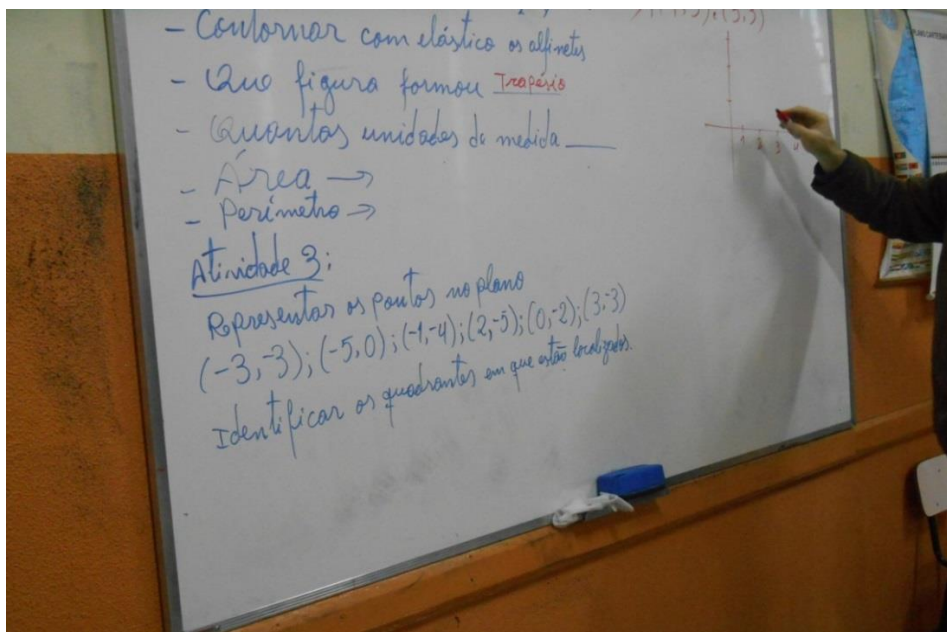 - Contornar com elástico os alfinetes
- Que figura formou Trapésio
- Quantos unidades de medida ____
- Área →
- Perímetro →
Atividade 3:
Representar os pontos no plano
(-3,-3); (-5,0); (-1,-4); (2,-5); (0,-2); (3,-3)
Identificar os quadrantes em que estão localizados.
1 2 3 4
PLANO CARTESIANO